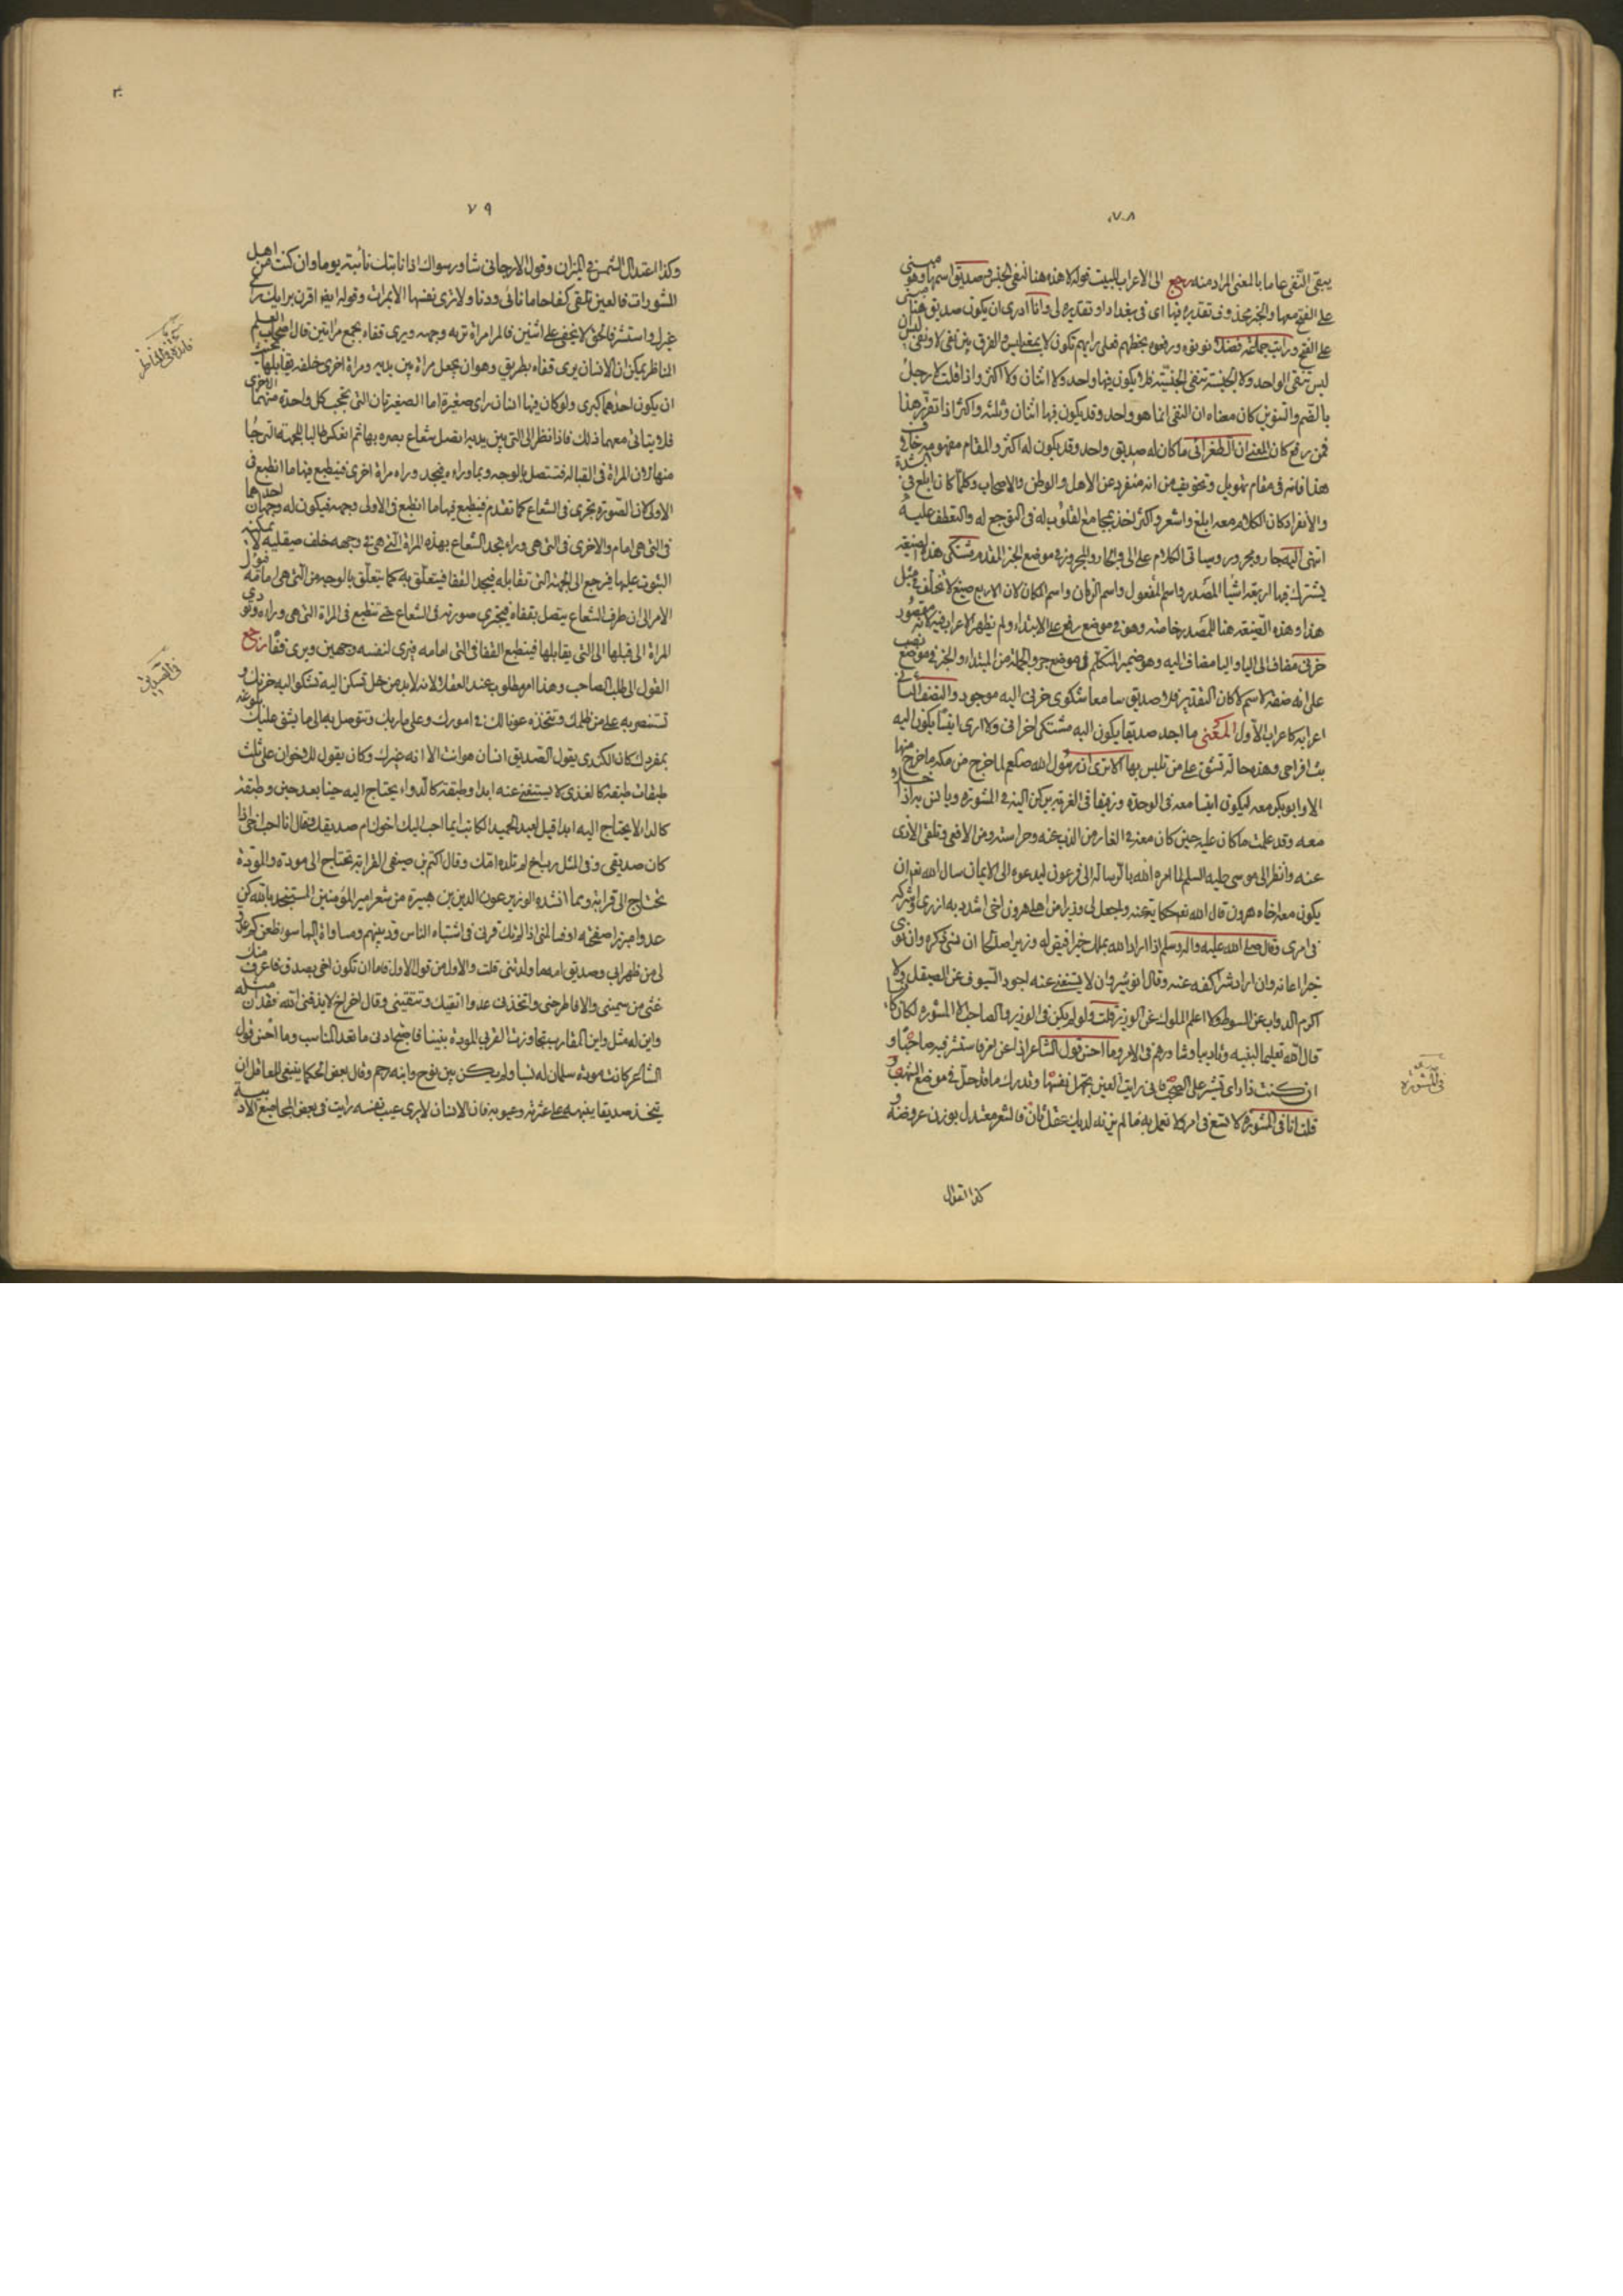 ٧٨
يبقى النفى عاما بالمعنى المراد منه رجع الى الاعراب للبيت قوله لا هذه هنا لنفى الجنس صديق اسمها وهو مبنى
على الفتح معها والخبر محذوف تقديره فيها اى فى بغداد او تقديره لى وانا ادرى ان يكون صديق هنا
على الفتح ورايت جماعة نونوه ورفعوه بخطهم فعلى رايهم تكون لا بمعنى ليس والفرق بين نفى لا ونفى ليس ان
ليس تنفى الواحد ولا الجنسية تنفى الجنسية فلا يكون فيها واحد ولا اثنان ولا اكثر واذا قلت لا رجل
بالضم والتنوين كان معناه ان النفى انما هو واحد وقد يكون فيها اثنان وثلثة واكثر اذا تقرر هذا
فمن رفع كان المعنى ان الطغرائى ما كان له صديق واحد وقد يكون له اكثر والمقام مفهومه خلاف
هذا فانه فى مقام تهويل وتخويف من انه منفرد عن الاهل والوطن والاصحاب وكلما كان ابلغ فى الشدة
والانفراد كان الكلام معه ابلغ واشعر واكثر اخذ بمجامع القلوب له فى التوجع له والتعطف عليه
اليه جار ومجرور وسياتى الكلام على الى والجار والمجرور فى موضع الخبر المقدم مشتكى هذه الصيغة
يشترك فيها اربعة اشيا المصدر واسم المفعول واسم الزمان واسم المكان لان الاربع صيغ لا تختلف فى مثل
هذا وهذه الصيغة هنا للمصدر خاصة وهو فى موضع رفع على الابتداء ولم يظهر الاعراب فيه لانه مقصور
حزنى مضاف الى اليا واليا مضاف اليه وهو ضمير المتكلم فى موضع جر والجملة من المبتداء والخبر فى موضع نصب
على انه صفة لاسم لا كان التقدير فلا صديق سامعا شكوى حزنى اليه موجود والنصف الثانى
اعرابه كاعراب الاول المعنى ما اجد صديقا يكون اليه مشتكى احزانى ولا ارى انيسا يكون اليه
بث افراحى وهذه حالة تشق على من تلبس بها الا ترى ان رسول الله صلعم لما خرج من مكة ما خرج منها
الا وابو بكر معه ليكون انيسا معه فى الوحدة ورفيقا فى الغربة يركن اليه فى المشورة ويانس به اذا
معه وقد علمت ما كان عليه حين كان معه فى الغار من الذب عنه وحراسته من الافعى وتلقى الاذى
عنه وانظر الى موسى عليه السلم لما امره الله بالرسالة الى فرعون ليدعوه الى الايمان سال الله تعالى ان
يكون معه اخاه هرون قال الله تعالى حكاية عنه واجعل لى وزيرا من اهلى هرون اخى اشدد به ازرى واشركه
فى امرى وقال صلى الله عليه واله وسلم اذا اراد الله بملك خيرا قيض له وزيرا صالحا ان نسى ذكره وان نوى
خيرا اعانه وان اراد شرا كفه عنه وقال انوشروان لا يستغنى عنه اجود السيوف عن الصيقل ولا
اكرم الدواب عن السوط ولا اعلم الملوك عن الوزير قلت ولو لم يكن فى الوزير والصاحب الا المشورة لكان
قال الله تعليما لنبيه وتاديبا وشاورهم فى الامر وما احسن قول الشاعر اذا عن امر فاستشر فيه صاحبا و
ان كنت ذا راى تشير على الصحب فانى رايت العين تجهل نفسها وتدرك ما قد حل فى موضع الشهب
قلت انا فى المشورة لا تتبع فى امر ولا تعمل به ما لم يزنه لديك عقل ثان فالشعر معتدل بوزن عروضه
كذا اعتدال
فى المشورة
٧٩
وكذا اعتدال الشمس فى الميزان وقول الارجانى شاور سواك اذا نابتك نائبة يوما وان كنت من اهل
المشورات فالعين تلقى كفاحا ما نأى ودنا ولا ترى نفسها الا بمرآت وقوله ايضا اقرن برايك راى
غيرك واستشر فالحق لا يخفى على اثنين فالمرا مراة تريه وجهه ويرى قفاه بجمع مراتين قال اصحاب العلم
المناظر يمكن ان الانسان يرى قفاه بطريق وهو ان يجعل مراة بين يديه ومراة اخرى خلفه يقابلها
ان يكون احدهما كبرى ولو كان فيها اسنان راى صغيرة اما الصغيرتان التى تحجب كل واحدة منهما الاخرى
فلا يتاتى معهما ذلك فاذا نظر الى التى بين يديه اتصل شعاع بصره بها ثم انعكس طالبا للجهة التى جا
منها لان المراة فى القبالة فتتصل بالوجه وبما وراه فيجد وراه مراة اخرى فينطبع فيها ما انطبع فى
الاولى كان الصورة تجرى فى الشعاع كما تقدم فينطبع فيها ما انطبع فى الاولى وجهه فيكون له وجهان احدهما
فى التى هى امامه والاخرى فى التى هى وراه يجد الشعاع بهذه المراة التى هى فى وجهه خلف صيقليه لا يمكنه
الثبوت عليها فيرجع الى الجهة التى تقابله فيجد القفا فيتعلق به كما يتعلق بالوجه من التى هى امامه
الامر الى ان طرف الشعاع يتصل بقفاه فيجرى صورته فى الشعاع حتى تنطبع فى المراة التى هى وراه
المراة الى قبلها الى التى يقابلها فينطبع القفا فى التى امامه فيرى لنفسه وجهين ويرى قفا رجع
القول الى طلب الصاحب وهذا امر مطلوب عند العقلاء لانه لابد من خل تسكن اليه تشكو اليه حزنك و
تستنصر به على من ظلمك وتتخذه عونا لك فى امورك وعلى ماربك وتتوصل به الى ما يشق عليك بلوغه
بمفردك كان الكندى يقول الصديق انسان هو انت الا انه غيرك وكان يقول للاخوان على ثلث
طبقات طبقة كالغذى لا يستغنى عنه ابدا وطبقة كالدواء يحتاج اليه حينا بعد حين وطبقة
كالداء لا يحتاج اليه ابدا قيل لعبد الحميد الكاتب ايما احب اليك اخوك ام صديقك فقال انا احب اخى اذا
كان صديقى وفى المثل رب اخ لم تلده امك وقال اكثم بن صيفى القرابة تحتاج الى مودة والمودة
تحتاج الى قرابة ومما انشده الوزير عون الدين بن هبيرة من شعر امير المؤمنين المستنجد بالله
لى من ظهر ابى وصديق امه ما ولدتنى قلت والاول من قول الاول فاما ان تكون اخى بصدق فاعرف منك
غثى من سمينى والا فاطرحنى واتخذنى عدوا اتقيك وتتقينى وقال اخر اخ لا يذقنى الله فقدان مثله
واين له مثل واين المقارب تجاوزت القربى المودة بيننا فاصبح ادنى ما تعد المناسب وما احسن قول
الشاعر كانت مودة سلمان له نسبا ولم يكن بين نوح وابنه رحم وقال بعض الحكما ينبغى للعاقل ان
يتخذ صديقا ينبهه على عثرته وعيوبه فان الانسان لا يرى عيب نفسه رايت فى بعض المجاميع الادبية
فى الصديق